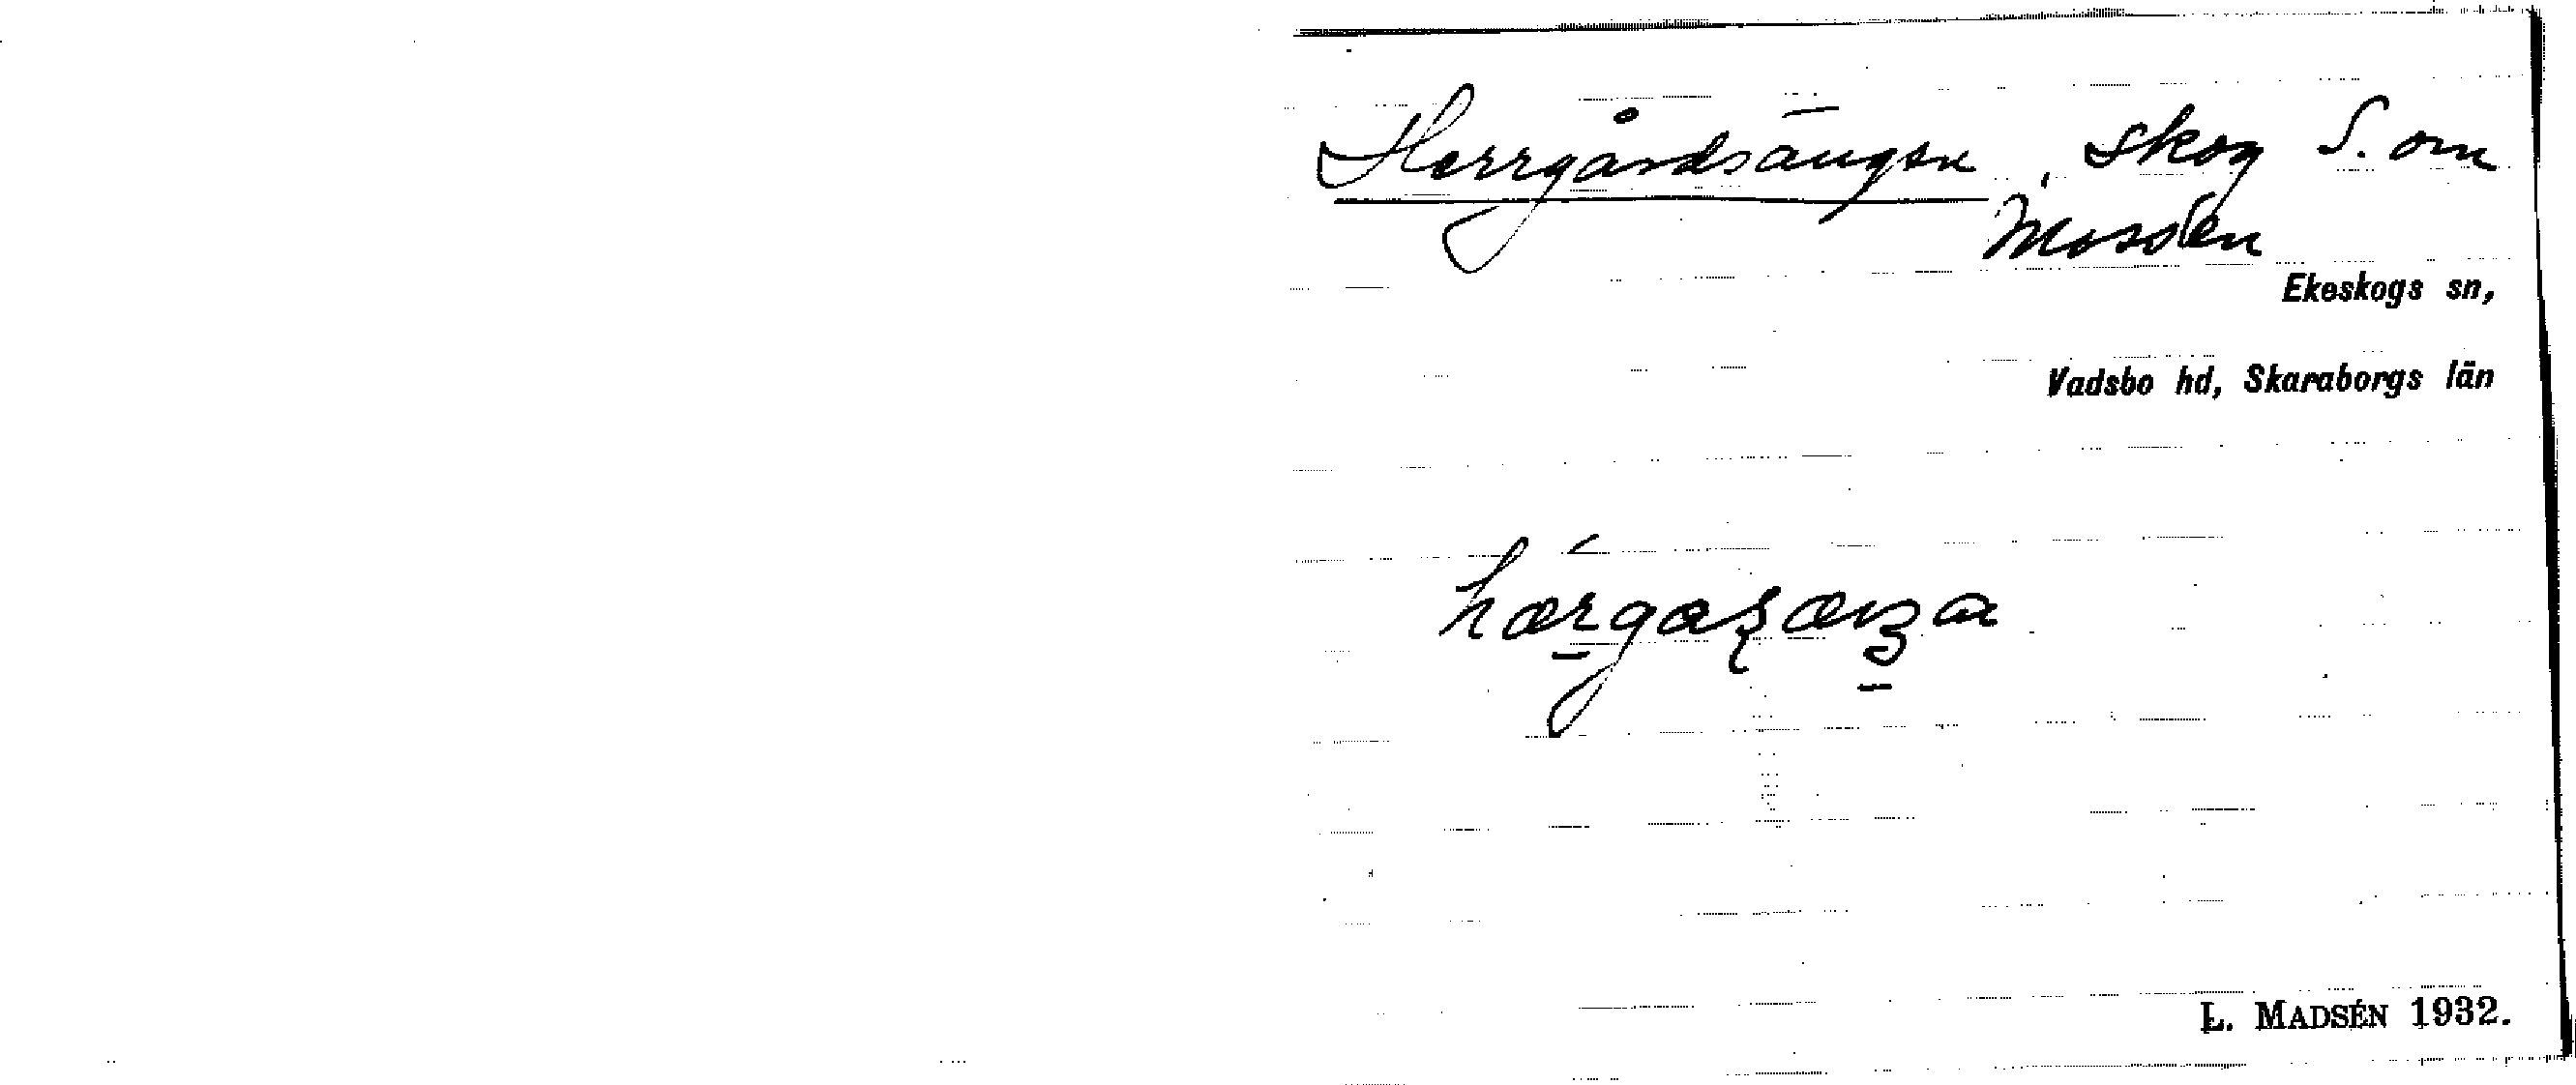 Herrgårdsängen, skog S. om
Mossen
Ekeskogs sn,
Vadsbo hd, Skaraborgs län
L. MADSÉN 1932.